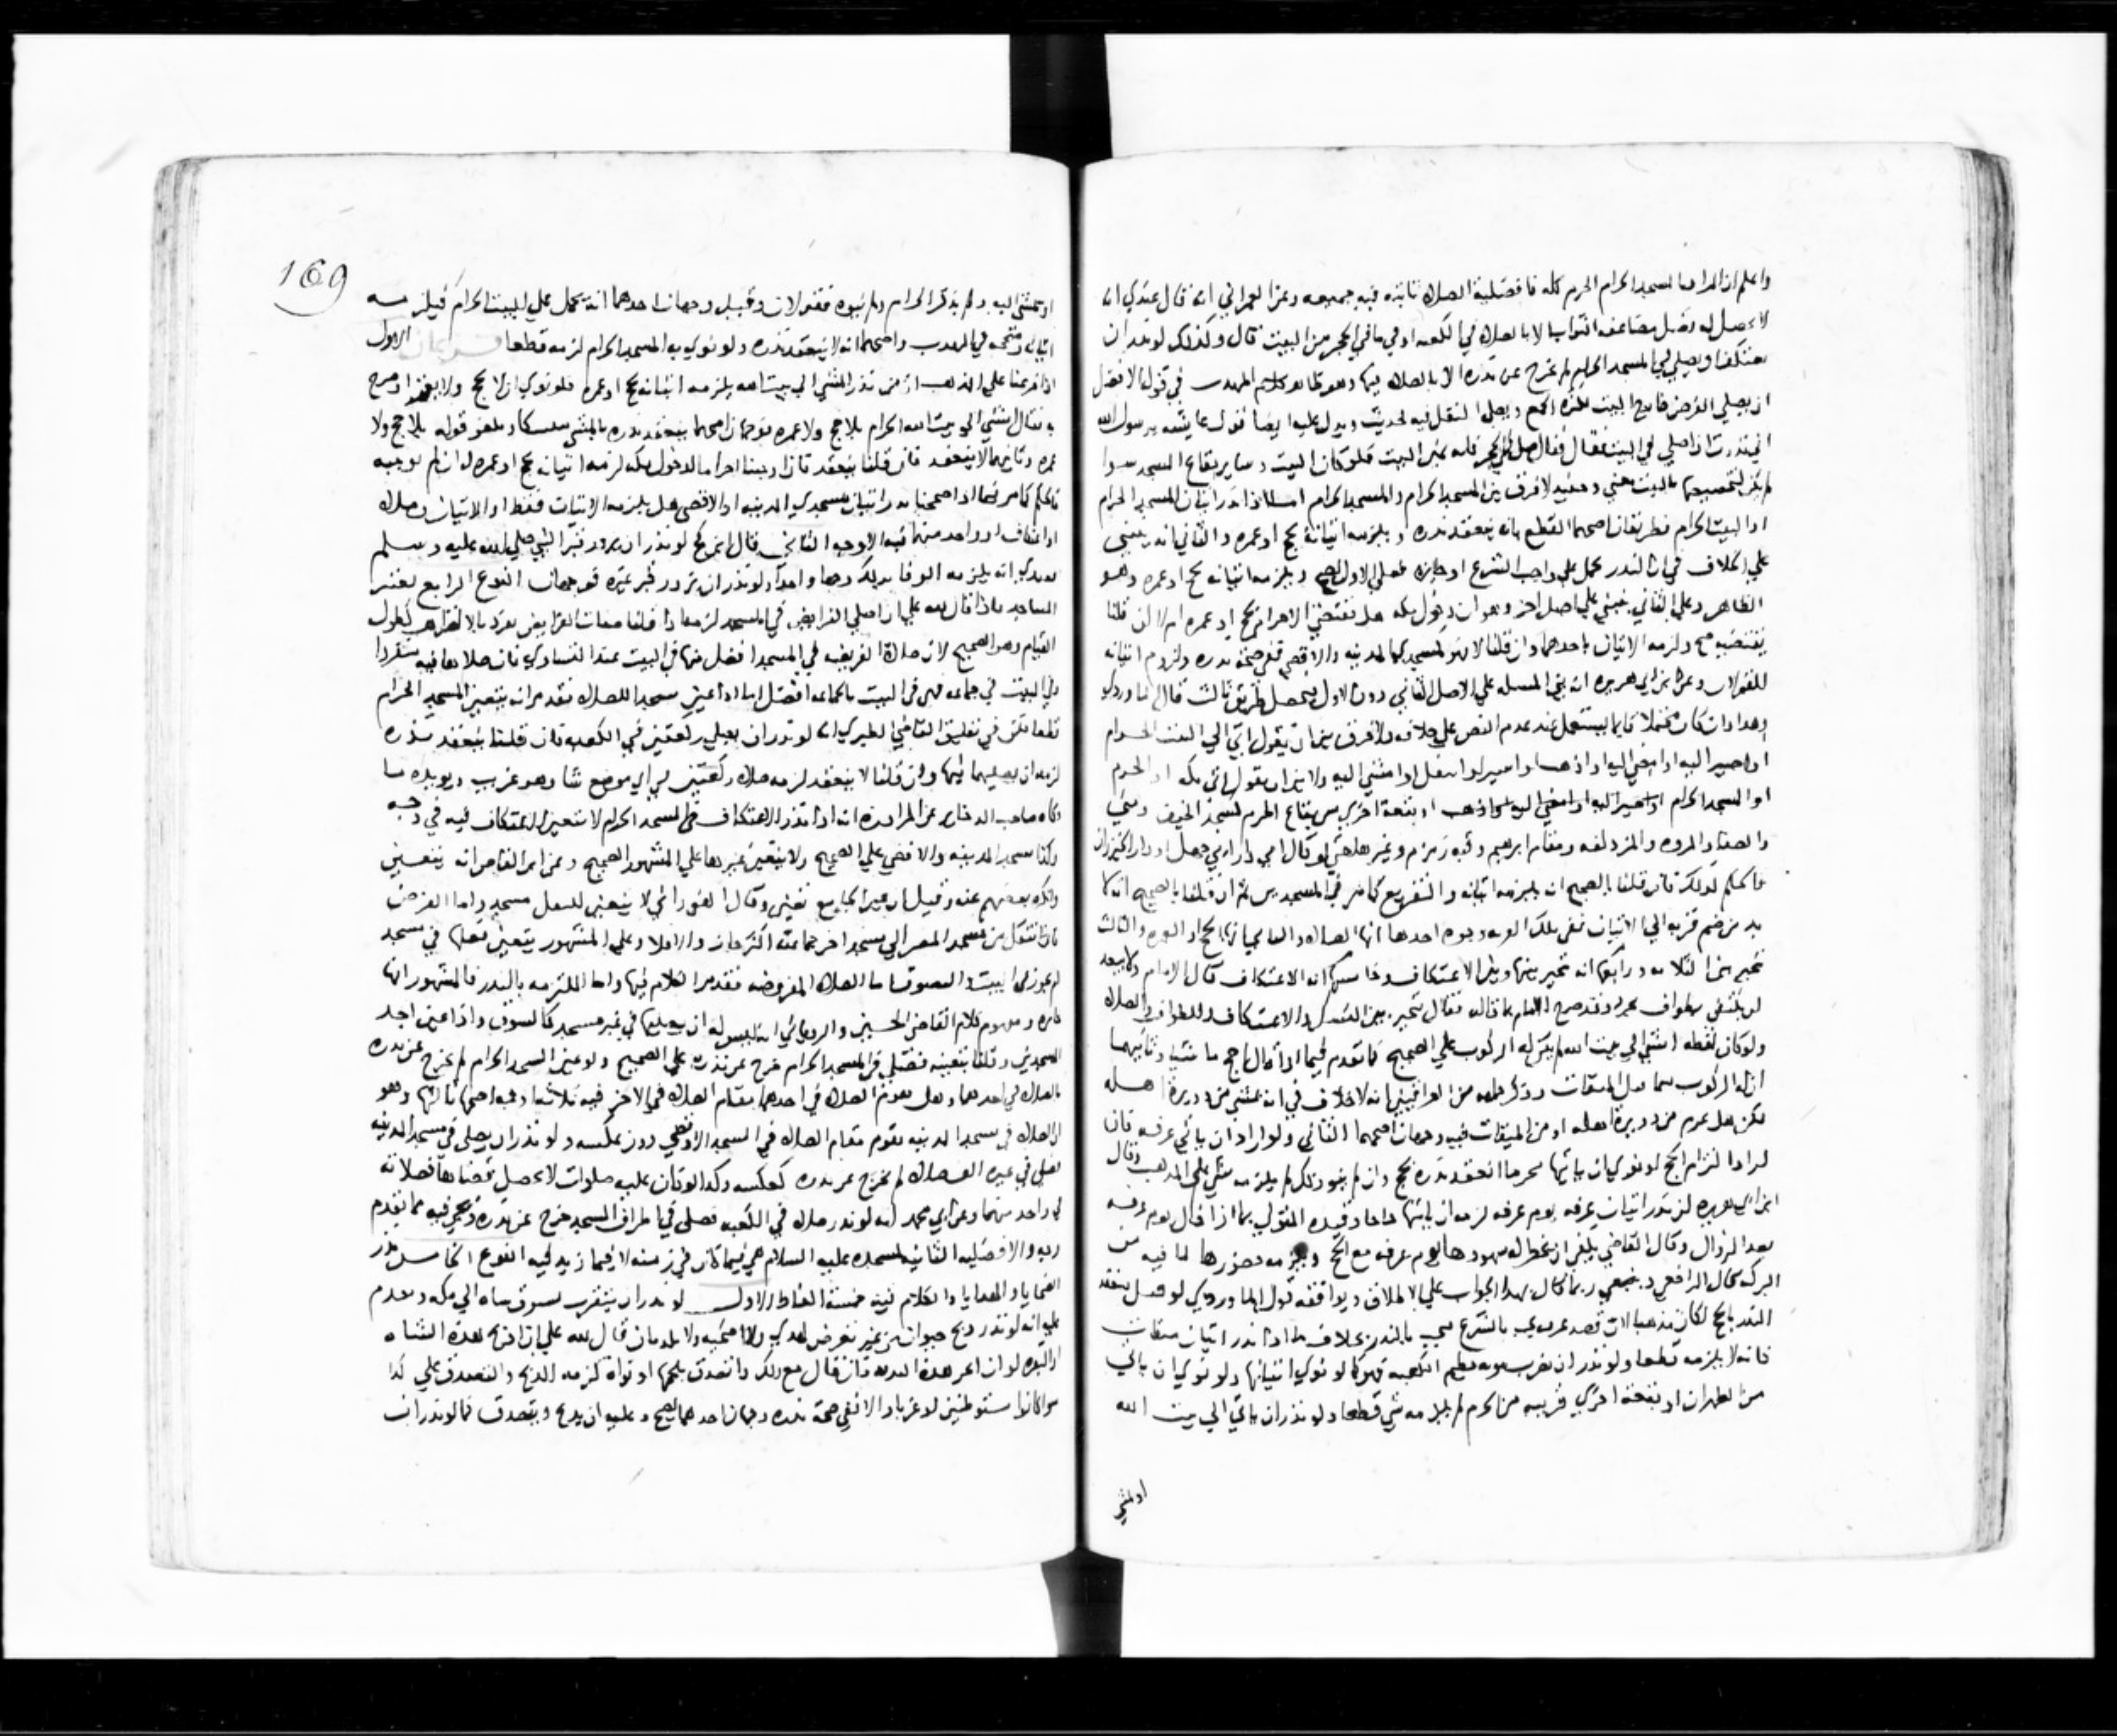 واعلم ان المراد بالمسجد الحرام الحرم كله فافضلية الصلاه ثابته فيه جميعه وعن العمراني انه قال عندي انه
لا يحصل له فضل مضاعفه الثواب الا بالصلاه في الكعبه او في ما في الحجر من البيت قال وكذلك لو نذر ان
يعتكف او يصلي في المسجد الحرام لم يخرج عن نذره الا بالصلاه فيها وهو ظاهر كلام المهذب في قوله الافضل
ان يصلي الفرض خارج البيت لكثرة الجمع ويصلي النفل فيه لحديث ويدل عليه ايضا قول عايشه يرسول الله
اني نذرت ان اصلي في البيت فقال صلي في الحجر فانه من البيت فلو كان البيت وساير بقاع المسجد سوا
لم يكن لتخصيصها بالبيت معني وحينيذ لا فرق بين المسجد الحرام والمسجد الحرام اما اذا نذر اتيان المسجد الحرام
او البيت الحرام فطريقان اصحهما القطع بانه ينعقد نذره ويلزمه اتيانه بحج او عمره والثاني انه ينبني
علي الخلاف في ان النذر يحمل علي واجب الشرع او جايزه فعلي الاول يصح ويلزمه اتيانه بحج او عمره وهو
الظاهر وعلي الثاني ينبني علي اصل اخر وهو ان دخول مكه هل يقتضي الاحرام بحج او عمره ام لا ان قلنا
يقتضيه صح ولزمه الاتيان باحدهما وان قلنا لا فهو كمسجد المدينه والاقصي ففي صحة نذره ولزوم اتيانه
القولان وعن ابن ابي هريره انه بني المسله علي الاصل الثاني دون الاول فيحصل طريق ثالث قال الماوردي
وهذا وان كان محتملا فانما يستعمل عند عدم النص علي خلافه ولا فرق بين ان يقول اتي الي البيت الحرام
او اصير اليه او امضي اليه او اذهب او اسير او انتقل او امشي اليه ولا بين ان يقول اتي مكه او الحرم
او المسجد الحرام او اصير اليه او امضي اليه او اذهب او بقعة اخري من بقاع الحرم كمسجد الخيف ومني
والصفا والمروه والمزدلفه ومقام ابراهيم وقبه زمزم وغيرها حتي لو قال اتي دار ابي جهل او دار الخيزران
فالحكم كذلك فان قلنا بالصحيح انه يلزمه اتيانه والتفريع كما مر في المسجدين ثم ان قلنا بالصحيح انه لا
بد من ضم قربه الي الاتيان ففي تلك القربه وجوه احدها انها الصلاه والثاني انها الحج او العمره والثالث
تخير بين الثلاثه ورابعها انه تخير بينها وبين الاعتكاف وخامسها انه الاعتكاف قال الامام ولا يبعد
ان يكتفي بطواف مجرد وقد صرح الامام بما قاله فقال تخير بين النسك والاعتكاف والطواف والصلاه
ولو كان لفظه امشي الي بيت الله لم يكن له الركوب علي الصحيح كما تقدم فيما اذا قال احج ماشيا وثانيهما
ان له الركوب بينهما قبل الميقات وذكر جماعه من العراقيين انه لا خلاف في انه يمشي من دويرة اهله
لكن هل يحرم من دويرة اهله او من الميقات فيه وجهان اصحهما الثاني ولو اراد ان ياتي عرفه فان
اراد التزام الحج او نوي ان ياتيها محرما انعقد نذره بحج وان لم ينو ذلك لم يلزمه شي علي المذهب وقال
ابن ابي هريره ان نذر اتيان عرفه يوم عرفه لزمه ان ياتيها حاجا وقيده المتولي بما اذا قال يوم عرفه
بعد الزوال وقال القاضي يكفي ان يحضر له شهودها يوم عرفه مع الحج ويلزمه حضورها لما فيه من
البركه قال الرافعي وينبغي ربما قال بهذا الجواب علي الاطلاق ويوافقه قول الماوردي لو قيل ينعقد
النذر بالحج لكان مذهبا لان قصد عرفه يجب بالشرع فيجب بالنذر بخلاف ما اذا نذر اتيان ميقات
فانه لا يلزمه قطعا ولو نذر ان يضرب بثوبه حطيم الكعبه فهو كما لو نوي اتيانها ولو نوي ان ياتي
مر الظهران او بقعة اخري قريبه من الحرم لم يلزمه شي قطعا ولو نذر ان ياتي الي بيت الله
او يمشي
169
او يمشي اليه ولم يذكر الحرام ولم ينوه فقولان وقيل وجهان احدهما انه يحمل علي البيت الحرام فيلزمه
اتيانه وصححه في المهذب واصحهما انه لا ينعقد نذره ولو نوي به المسجد الحرام لزمه قطعا فرعان الاول
اذا فرعنا علي المذهب ان من نذر المشي الي بيت الله يلزمه اتيانه بحج او عمره فلو نوي ان لا يحج ولا يعتمر او صرح
به فقال امشي الي بيت الله الحرام بلا حج ولا عمره فوجهان اصحهما ينعقد نذره بالمشي نسكا ويلغو قوله بلا حج ولا
عمره وثانيهما لا ينعقد فان قلنا ينعقد فان اوجبنا احراما لدخول مكه لزمه اتيانه بحج او عمره وان لم نوجبه
فالحكم كما مر فيما اذا صححنا نذر اتيان مسجدي المدينه او الاقصي هل يلزمه الاتيان فقط او الاتيان وصلاه
او اعتكاف او واحد منهما فيه الاوجه الثاني قال ابن كج لو نذر ان يزور قبر النبي صلي الله عليه وسلم
فعندي انه يلزمه الوفا بذلك وجها واحدا ولو نذر ان يزور قبر غيره فوجهان النوع الرابع تعيين
المساجد فاذا قال لله علي ان اصلي الفرايض في المسجد لزمه اذا قلنا صفات الفرايض تفرد بالالتزام كطول
القيام وهو الصحيح لان صلاة الفريضه في المسجد افضل منها في البيت عند التساوي فان صلاها فيه منفردا
وفي البيت في جماعه فهي في البيت بالجماعه افضل اما اذا عين مسجدا للصلاه فقد مر انه يتعين المسجد الحرام
قطعا لكن في تعليق القاضي الطبري انه لو نذر ان يصلي ركعتين في الكعبه فان قلنا ينعقد نذره
لزمه ان يصليهما فيها وان قلنا لا ينعقد لزمه صلاه ركعتين في اي موضع شا وهو غريب ويويده ما
حكاه صاحب الذخاير عن المراوزه انه اذا نذر الاعتكاف في المسجد الحرام لا يتعين للاعتكاف فيه في وجه
وكذا مسجد المدينه والاقصي علي الصحيح ولا يتعين غيرها علي المشهور الصحيح وعن ابن القاص انه يتعين
وانكره بعضهم عنه وقيل ان عين الجامع تعين وقال الفوراني لا يتعين للنفل مسجد واما الفرض
فان انتقل من مسجد المصر الي مسجد اخر جماعته اكثر جاز والا فلا وعلي المشهور يتعين فعلها في مسجد
لم يجز في البيت والسوق اما الصلاه المفروضه فقد مر الكلام فيها واما الملتزمه بالنذر فالمشهور انها
كغيره ومفهوم كلام القاضي الحسين والروياني انه ليس له ان يصليها في غير مسجد كالسوق واذا عين احد
المسجدين وقلنا بتعيينه فصلي في المسجد الحرام خرج عن نذره علي الصحيح ولو عين المسجد الحرام لم يخرج عن نذره
بالصلاه في احدهما وهل تقوم الصلاه في احدهما مقام الصلاه في الاخر فيه ثلاثه اوجه اصحها ثالثها وهو
ان الصلاه في مسجد المدينه تقوم مقام الصلاه في المسجد الاقصي دون عكسه ولو نذر ان يصلي في مسجد المدينه
فصلي في غيره الف صلاه لم يخرج عن نذره كعكسه وكذا لو كان عليه صلوات لا يحصل قضاها بصلاته
في واحد منهما وعن ابي محمد انه لو نذر صلاه في الكعبه فصلي في اطراف المسجد خرج عن نذره وفيه ما تقدم
والافضليه الثابته لمسجده عليه السلام هي فيما كان في زمنه لا فيما زيد فيه النوع الخامس نذر
الضحايا والهدايا والكلام فيه خمسة الفاظ الاول لو نذر ان يتقرب بسوق شاه الي مكه وتقدم
عليه انه لو نذر ذبح حيوان من غير تعرض لهدي ولا اضحيه ولا بلد بان قال لله علي ان اذبح هذه الشاه
او البقره او ان انحر هذه البدنه فان قال مع ذلك واتصدق بلحمها او نواه لزمه الذبح والتصدق علي كذا
سوا كانوا مستوطنين او غرباء والا ففي صحة نذره وجهان احدهما يصح وعليه ان يذبح ويتصدق كما لو نذر ان